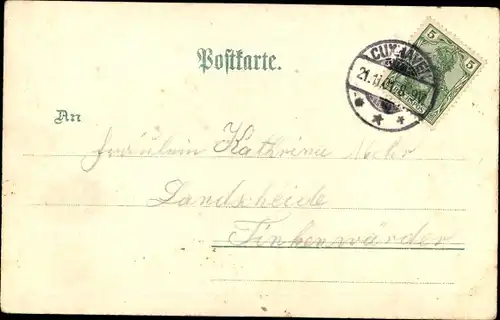 Postkarte.
CUXHAVEN
5 5
21.11.01.
An
Fräulein Kathrine
Landscheide
Finkenwärder